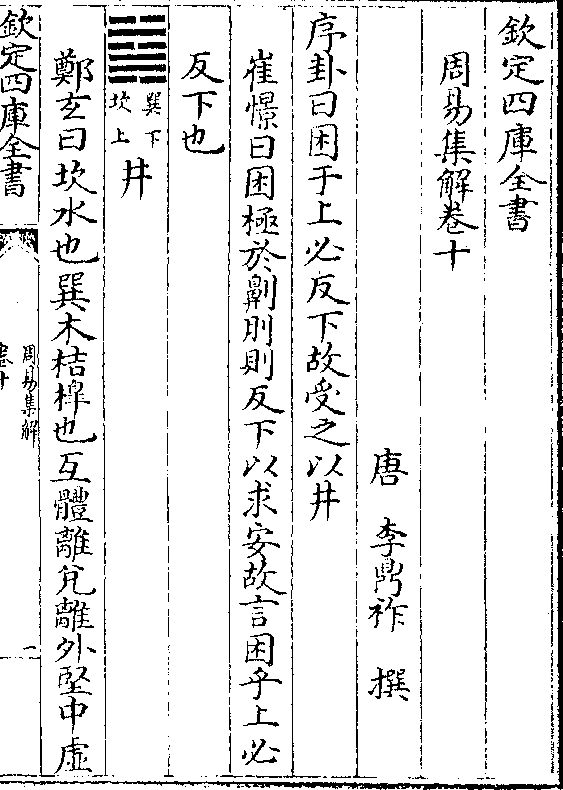 欽定四庫全書
周易集解卷十
唐 李鼎祚 撰
序卦曰困于上必反下故受之以井
崔憬曰困極於劓刖則反下以求安故言困乎上必
反下也
巽下
坎上
井
鄭玄曰坎水也巽木桔槹也互體離兌離外堅中虛
欽定四庫全書
周易集解
卷十
一